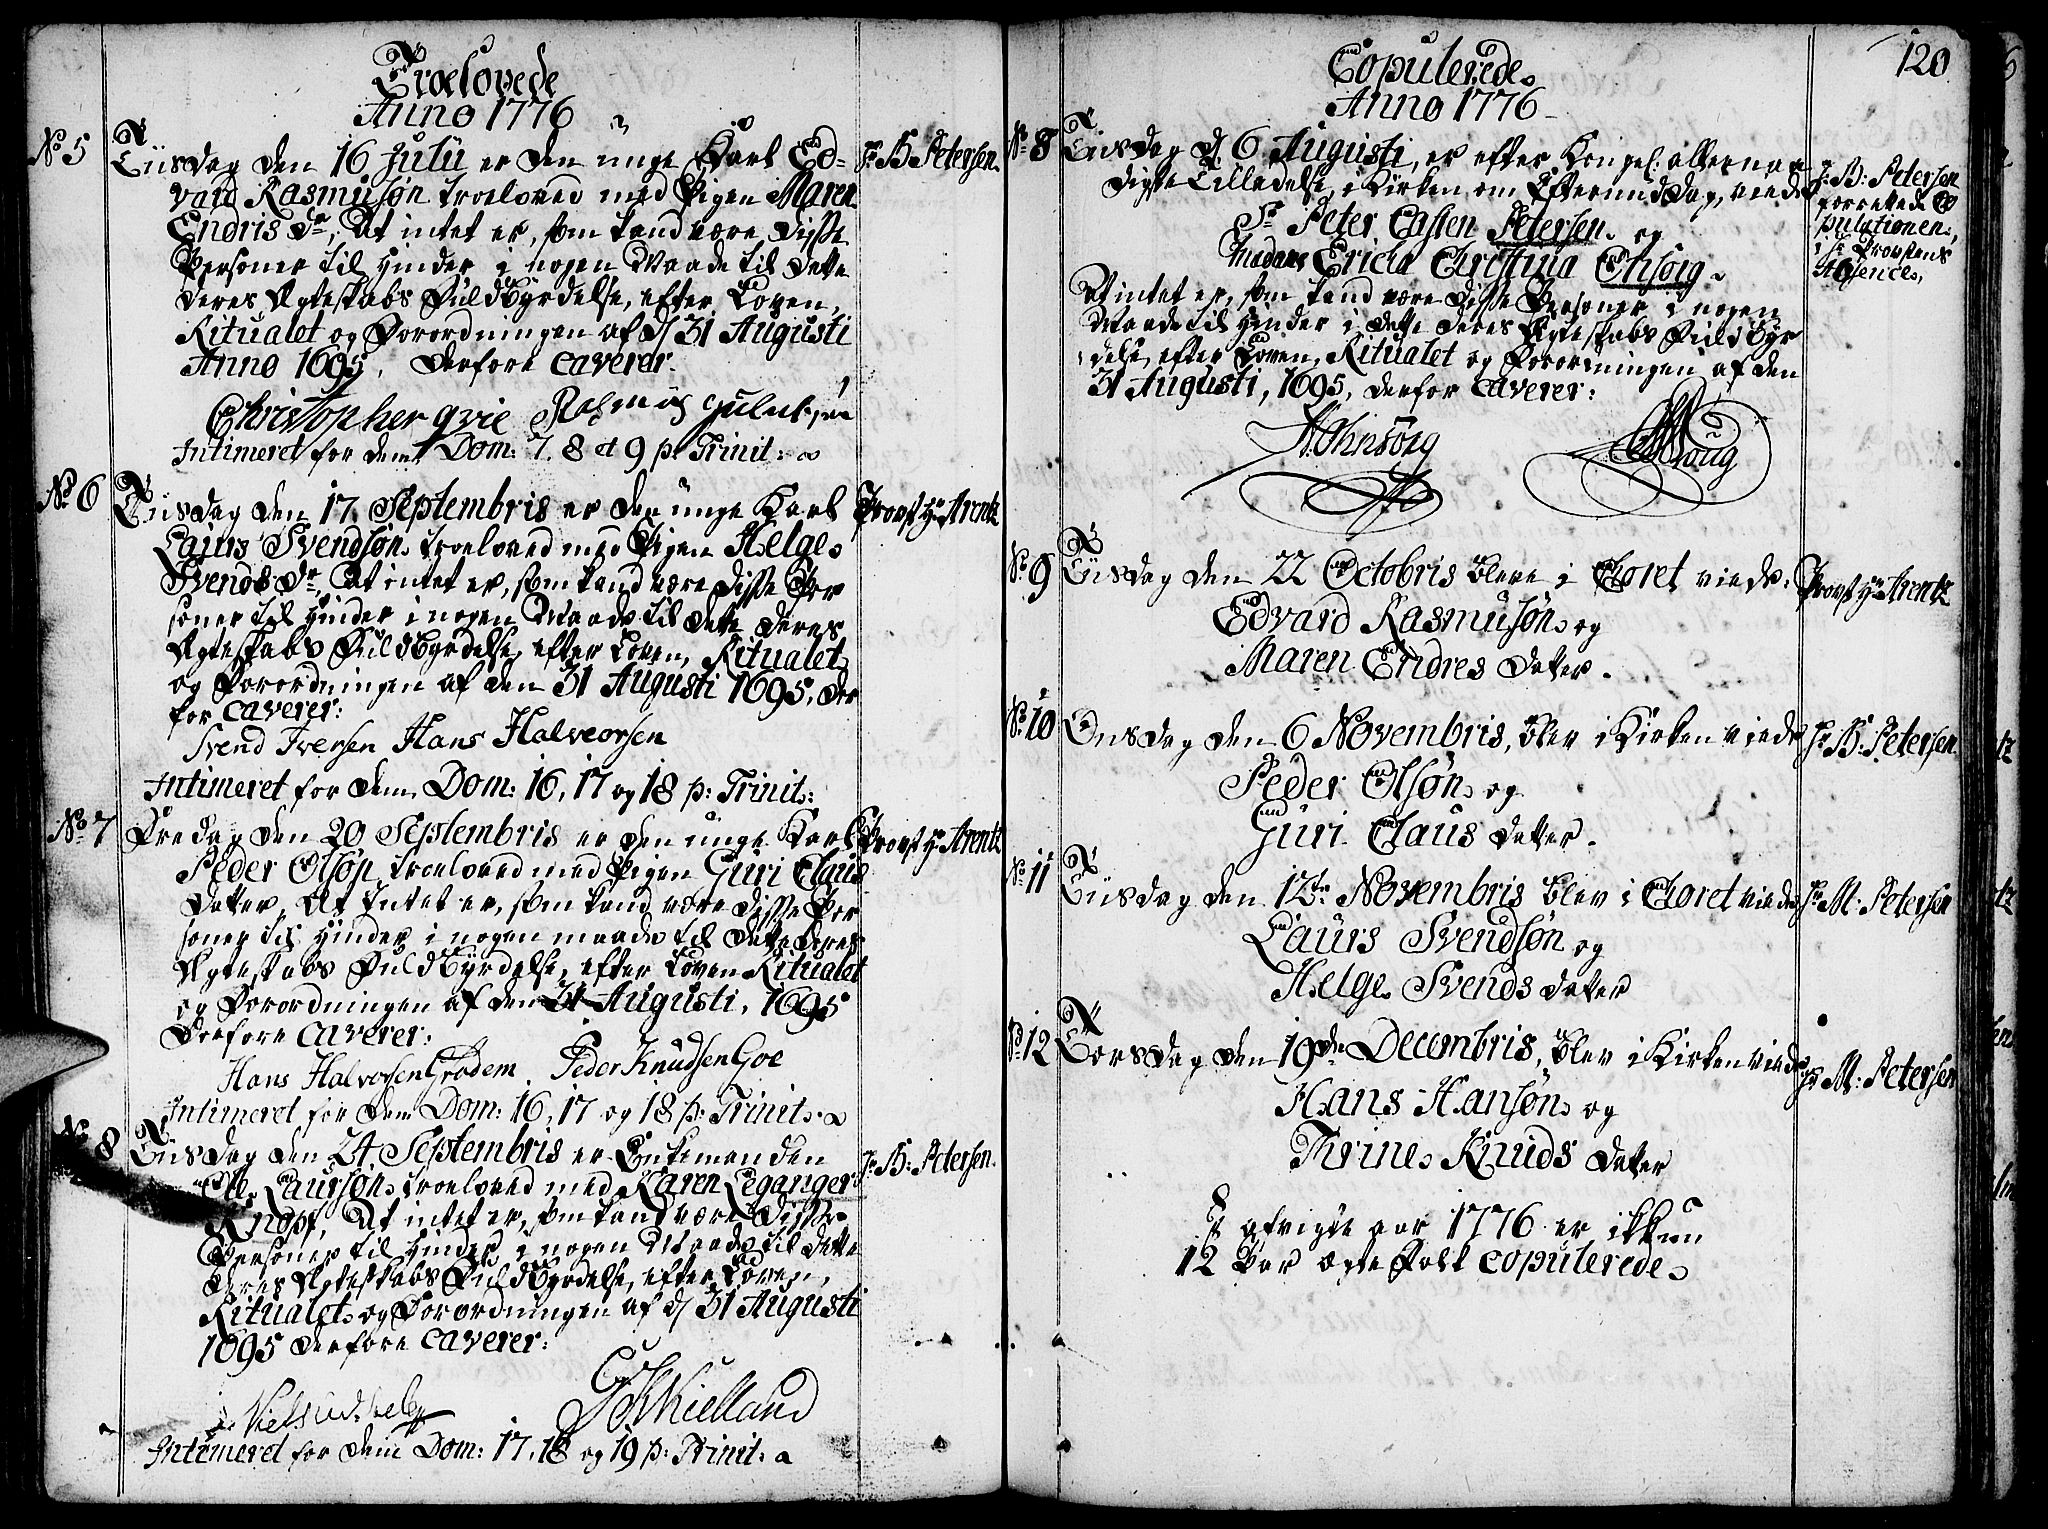 Troelovede
Anno 1776
No 5
Tiisdag den 16 Julii er den unge Karl Ed-
vard Rasmusøn troeloved med Pigen Maren
Endris Dr, At intet er, som kand være disse
Personer til hinder i nogen Maade til dette
deres Ægteskabs Fuldbyrdelse, efter Loven,
Ritualet og Forordningen af d 31 Augusti
Anno 1695, derfore caverer.
Christopher qvie Rasmus
Intimeret for dem Dom: 7, 8 et 9 p. Trinit:
Hr B Petersen.
No 6
Tiisdag den 17 Septembris er den unge Karl
Laurs Svendsøn troeloved med Pigen Helge
Svends Dr, At intet er, som kand være disse Per
soner til hinder i nogen Maade til dette deres
Ægteskabs Fuldbyrdelse, efter Loven, Ritualet
og Forordningen af den 31 Augusti 1695, der
for caverer:
Svend Iversen Hans Halveorsen
Intimeret for dem Dom: 16, 17 og 18 p: Trinit:
Provst Hr Arentz
No 7
Fredag den 20 Septembris er den unge Karl
Peder Olsøn troeloved med Pigen Guri Claus
datter, At Intet er, som kand være disse Per
soner til hinder i nogen maade til dette deres
Ægteskabs Fuldbyrdelse, efter Loven Ritualet
og Forordningen af den 31 Augusti, 1695
derfore caverer:
Hans Halvorsen Grødem Peder Knudsen Goe
Intimeret for dem Dom: 16, 17 og 18 p: Trinit:
Provst Hr Arentz
No 8
Tiisdag den 24 Septembris er Enkemanden
Ole Laursøn troeloved med Karen Leganger
Knopf, At intet er, som kand være disse
Personer til hinder i nogen Maade til dette
deres Ægteskabs Fuldbyrdelse, efter Loven,
Ritualet og Forordningen af d 31 Augusti
1695 derfore caverer:
Niels GSKielland
Intimeret for dem Dom: 17, 18 og 19 p: Trinit:
Hr B: Petersen.
120
Copulerede
Anno 1776
No 8
Tiisdag d. 6 Augusti, er efter Kongel: allernaa
digste Tilladelse, i Kirken om Eftermiddag, viede
Sr Peter Casten Petersen og
Madame Ericha Christina Ohnsorg
At intet er, som kand være disse Personer i nogen
Maade til hinder i dette deres Ægteskabs Fuldbyr
delse, efter Loven, Ritualet og Forordningen af den
31 Augusti, 1695, derfor caverer:
Ohnsorg
Hr B: Petersen
forrettede Co
pulationen,
i Hr Provstens
Absence.
No 9
Tiisdag den 22 Octobris bleve i Choret viede
Edvard Rasmusøn og
Maren Endres datter.
Provst Hr Arentz
No 10
Onsdag den 6 Novembris, blev i Kirken viede
Peder Olsøn og
Guri Claus datter.
Hr B: Petersen
No 11
Tiisdag den 12te Novembris blev i Choret viede
Laurs Svendsøn og
Helge Svends datter
Hr M: Petersen
No 12
Torsdag den 19de Decembris, blev i Kirken viede
Hans Hansøn og
Thrine Knuds datter
Hr M: Petersen
I afvigte aar 1776 er ikkun
12 Par ægte Folk copulerede